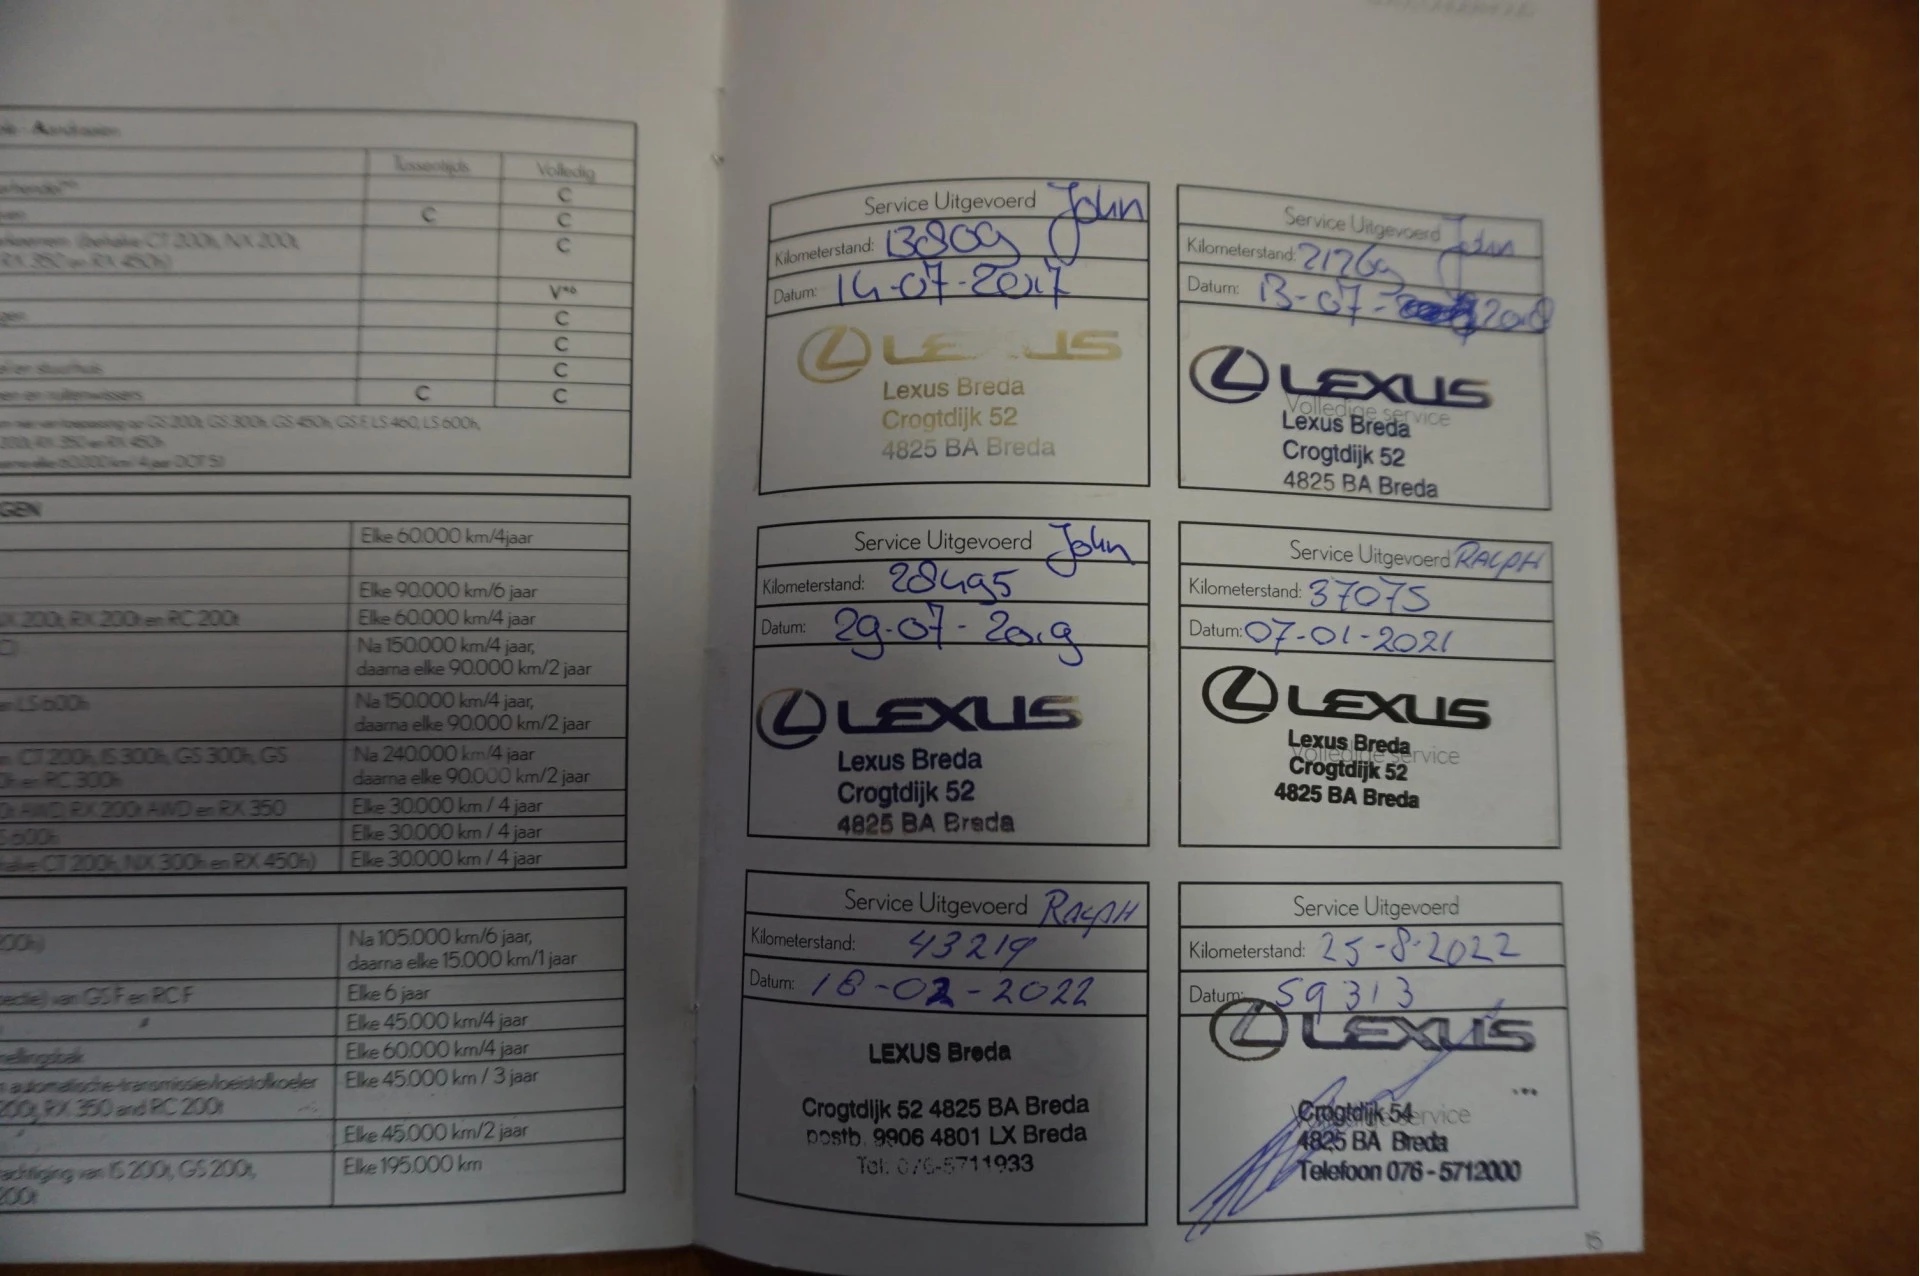 Tussentijds Volledig
C
C C
(behalve CT 200h, NX 200t,
RX 350 en RX 450h) C
V*6
C
C
en stuurhuis C
en ruitenwissers C C
van toepassing op GS 200t, GS 300h, GS 450h, GS F, LS 460, LS 600h,
200t, RX 350 en RX 450h
elke 60.000 km/ 4 jaar DOT 5.1
GEN
Elke 60.000 km/4jaar
Elke 90.000 km/6 jaar
200t, RX 200t en RC 200t Elke 60.000 km/4 jaar
Na 150.000 km/4 jaar,
daarna elke 90.000 km/2 jaar
en LS 600h Na 150.000 km/4 jaar,
daarna elke 90.000 km/2 jaar
CT 200h, IS 300h, GS 300h, GS Na 240.000 km/4 jaar
en RC 300h daarna elke 90.000 km/2 jaar
AWD, RX 200t AWD en RX 350 Elke 30.000 km / 4 jaar
600h Elke 30.000 km / 4 jaar
CT 200h, NX 300h en RX 450h) Elke 30.000 km / 4 jaar
200h) Na 105.000 km/6 jaar,
daarna elke 15.000 km/1 jaar
van GS F en RC F Elke 6 jaar
Elke 45.000 km/4 jaar
Elke 60.000 km/4 jaar
automatische-transmissievloeistofkoeler Elke 45.000 km / 3 jaar
200t, RX 350 and RC 200t
Elke 45.000 km/2 jaar
van IS 200t, GS 200t, Elke 195.000 km
200t
Service Uitgevoerd John
Kilometerstand: 13809
Datum: 14-07-2017
LEXUS
Lexus Breda
Crogtdijk 52
4825 BA Breda
Service Uitgevoerd John
Kilometerstand: 21269
Datum: 13-07- 2018
LEXUS
Volledige service
Lexus Breda
Crogtdijk 52
4825 BA Breda
Service Uitgevoerd John
Kilometerstand: 28495
Datum: 29-07-2019
LEXUS
Lexus Breda
Crogtdijk 52
4825 BA Breda
Service Uitgevoerd RALPH
Kilometerstand: 37075
Datum: 07-01-2021
LEXUS
Lexus Breda
Volledige service
Crogtdijk 52
4825 BA Breda
Service Uitgevoerd RALPH
Kilometerstand: 43219
Datum: 18-02-2022
LEXUS Breda
Crogtdijk 52 4825 BA Breda
postb. 9906 4801 LX Breda
Tel: 076-5711933
Service Uitgevoerd
Kilometerstand: 25-8-2022
Datum: 59313
LEXUS
Crogtdijk 54
service
4825 BA Breda
Telefoon 076 - 5712000
15